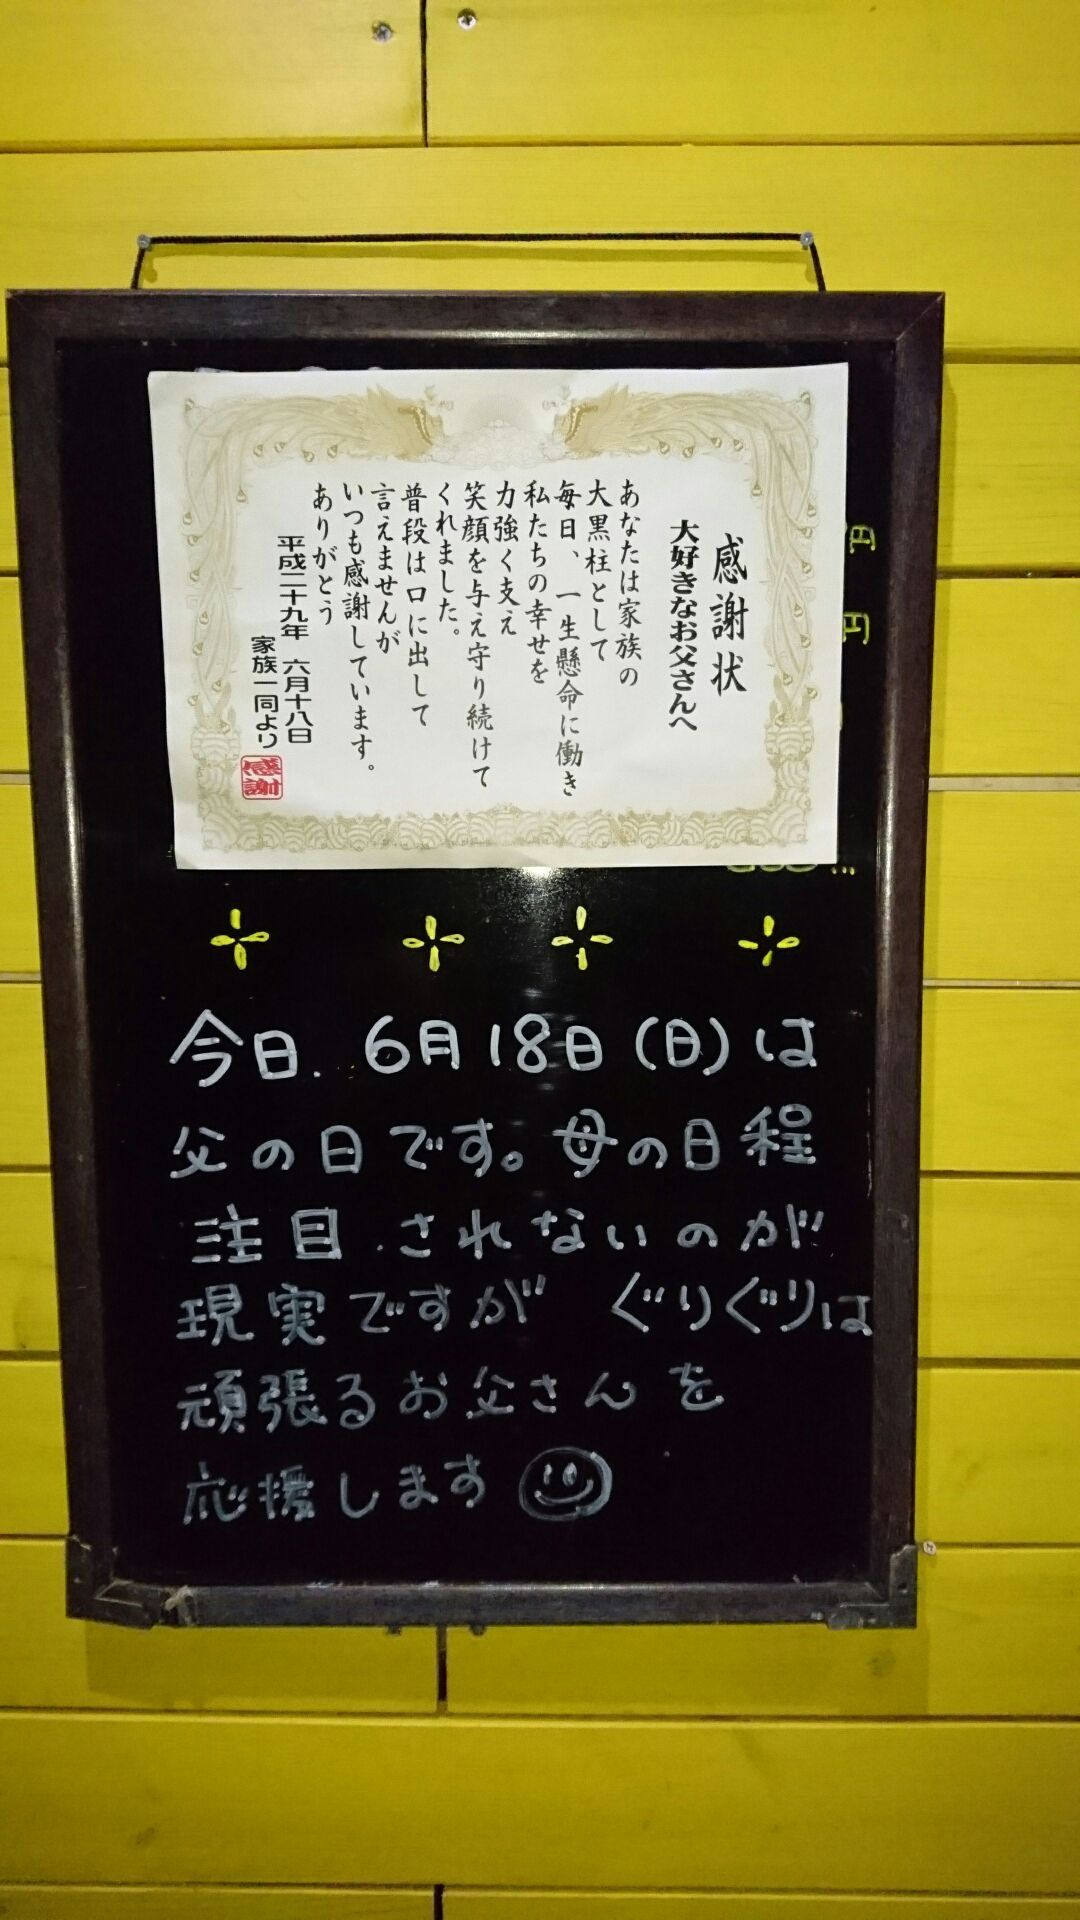 感謝状
大好きなお父さんへ
あなたは家族の
大黒柱として
毎日、一生懸命に働き
私たちの幸せを
力強く支え
笑顔を与え守り続けて
くれました。
普段は口に出して
言えませんが
いつも感謝しています。
ありがとう
平成二十九年 六月十八日
家族一同より
感謝
円
円
今日、6月18日(日)は
父の日です。母の日程
注目されないのが
現実ですが ぐりぐりは
頑張るお父さんを
応援します